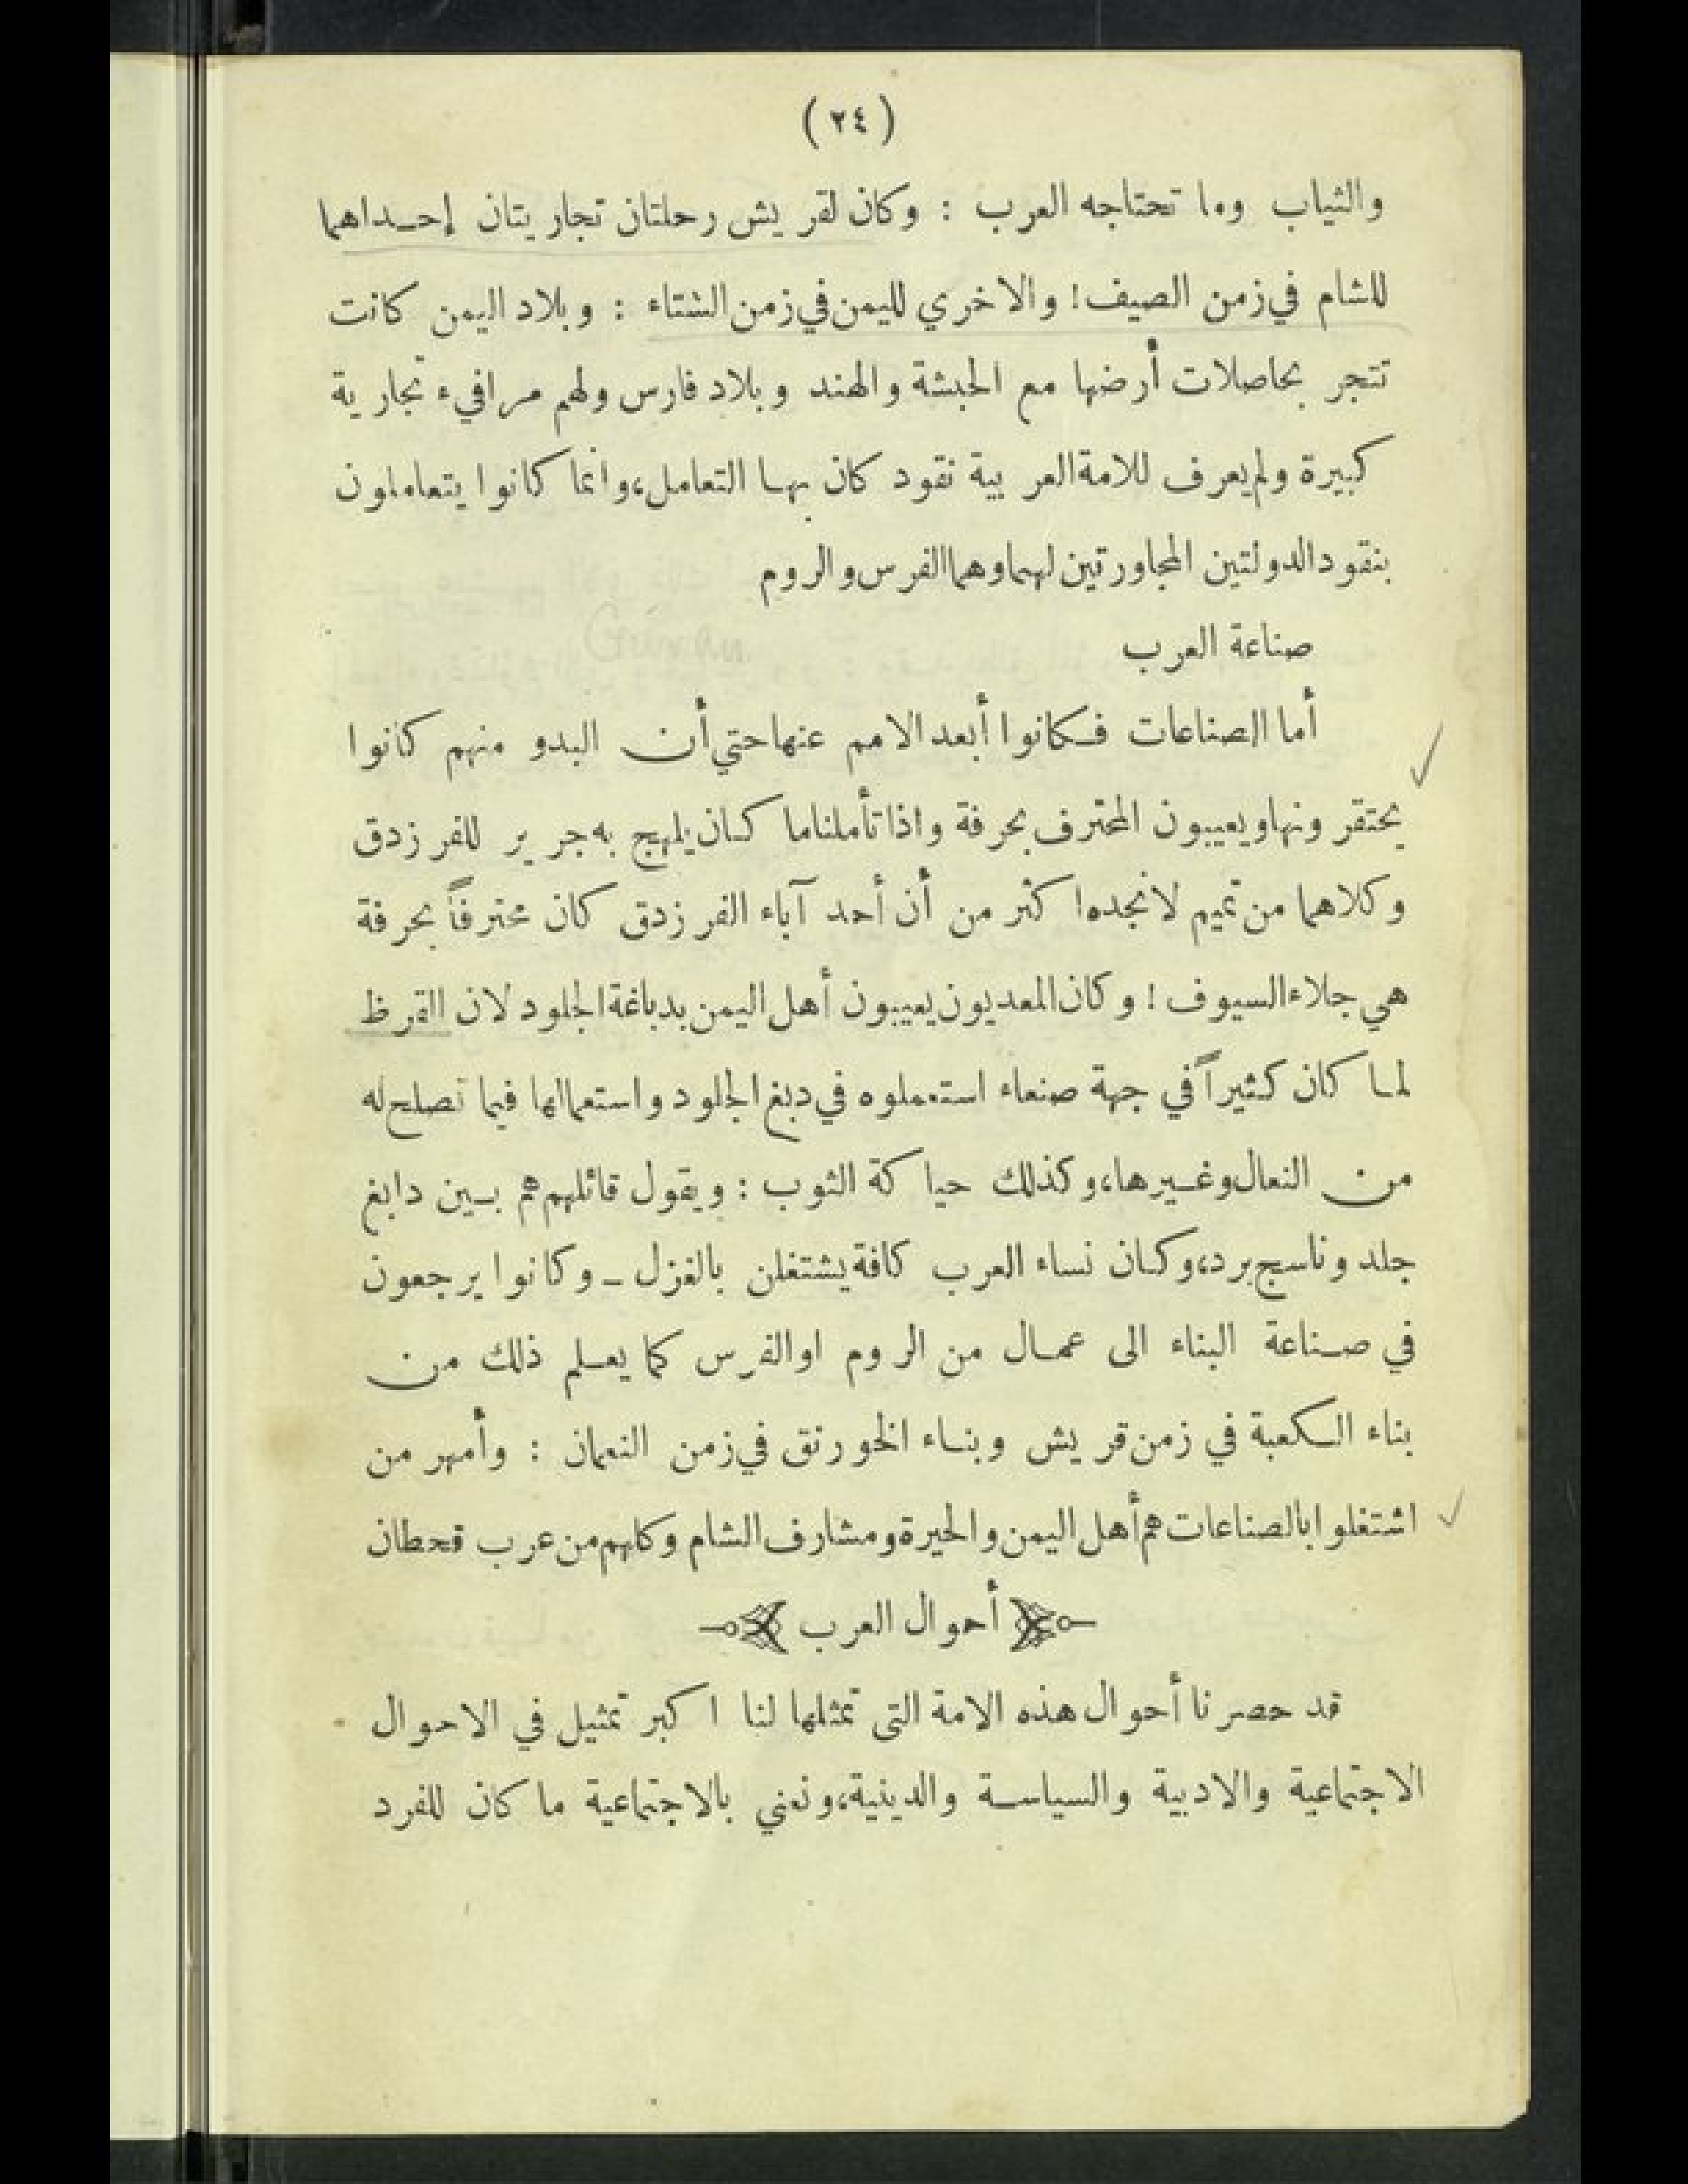 (٢٤)
والثياب وما تحتاجه العرب : وكان لقريش رحلتان تجاريتان إحداهما
للشام في زمن الصيف ! والاخري لليمن في زمن الشتاء : وبلاد اليمن كانت
تتجر بحاصلات أرضها مع الحبشة والهند وبلاد فارس ولهم مرافيء تجارية
كبيرة ولم يعرف للامة العربية نقود كان بها التعامل، وانما كانوا يتعاملون
بنقود الدولتين المجاورتين لهما وهما الفرس والروم
صناعة العرب
أما الصناعات فكانوا أبعد الامم عنها حتي أن البدو منهم كانوا
يحتقرونها ويعيبون المحترف بحرفة واذا تأملنا ما كان يلهج به جرير للفرزدق
وكلاهما من تميم لا نجده اكثر من أن أحد آباء الفرزدق كان محترفاً بحرفة
هي جلاء السيوف ! وكان المعديون يعيبون أهل اليمن بدباغة الجلود لان القرظ
لما كان كثيراً في جهة صنعاء استعملوه في دبغ الجلود واستعمالها فيما تصلح له
من النعال وغيرها، وكذلك حياكة الثوب : ويقول قائلهم هم بين دابغ
جلد وناسج برد، وكان نساء العرب كافة يشتغلن بالغزل ـ وكانوا يرجعون
في صناعة البناء الى عمال من الروم او الفرس كما يعلم ذلك من
بناء الكعبة في زمن قريش وبناء الخورنق في زمن النعمان : وأمهر من
اشتغلوا بالصناعات هم أهل اليمن والحيرة ومشارف الشام وكلهم من عرب قحطان
أحوال العرب
قد حصرنا أحوال هذه الامة التى تمثلها لنا اكبر تمثيل في الاحوال
الاجتماعية والادبية والسياسة والدينية، ونعني بالاجتماعية ما كان للفرد